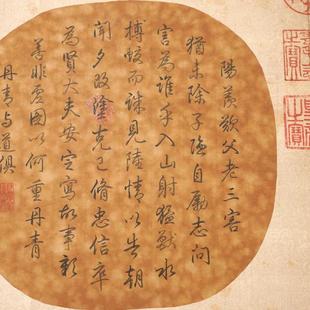 陽羨歎父老三害
猶未除子隱自勵志問
害為誰乎入山射猛獸水
搏蛟而誅見陸情以告朝
聞夕改塗克己脩忠信卒
為賢大夫安定寫故事彰
善非虛圖以何重丹青
丹青与道俱